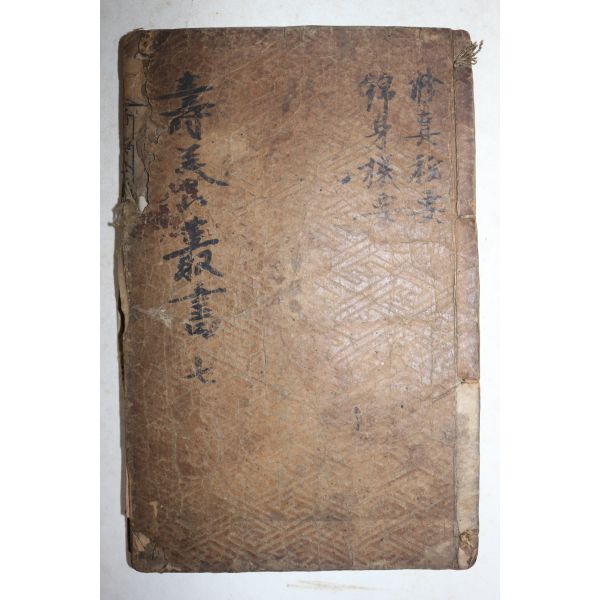 修真秘要
錦身機要
壽養叢書 七